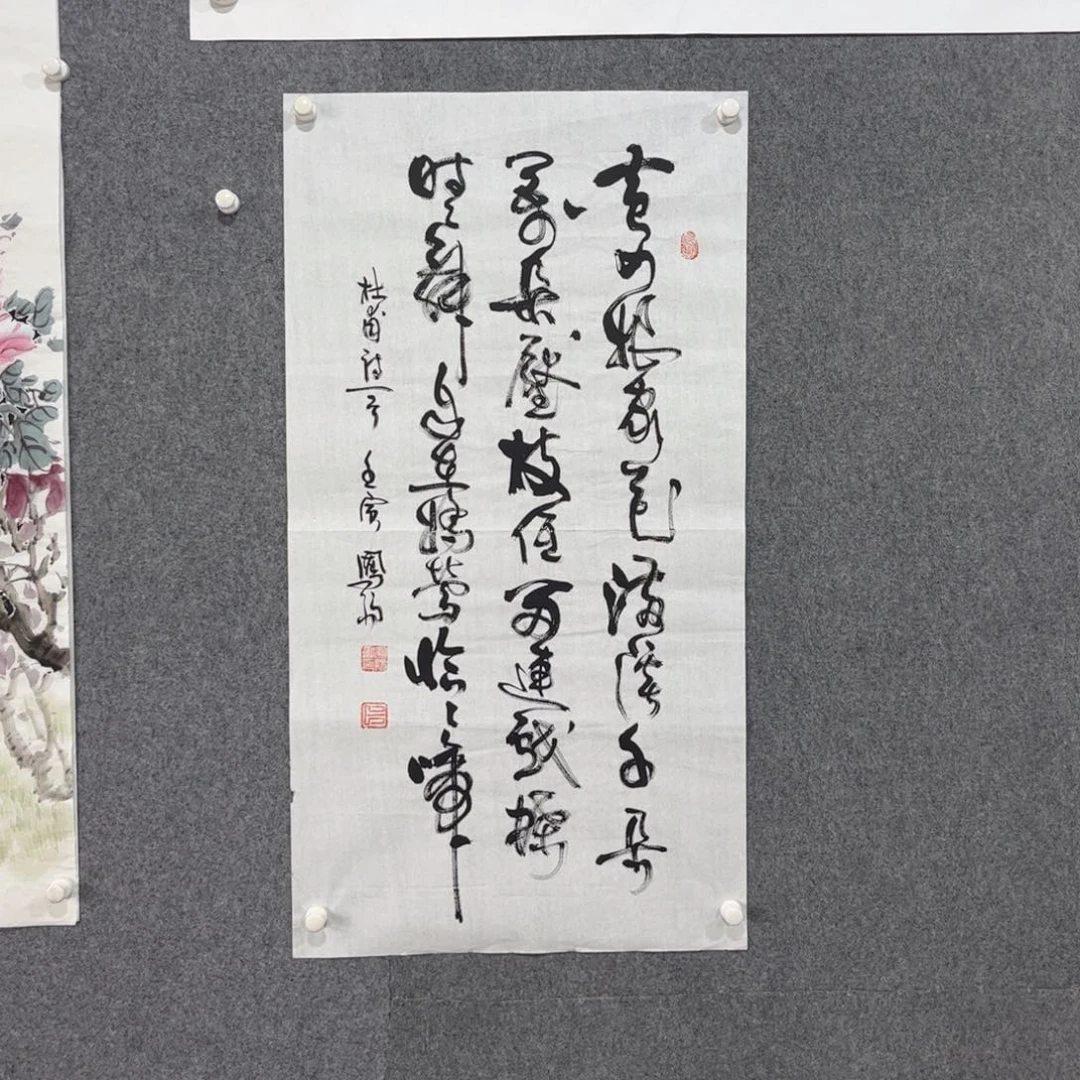 黄四娘家花满蹊千朵
萬朵壓枝低留連戏蝶
时々舞自在娇莺恰々啼
杜甫诗一首 壬寅 鳳